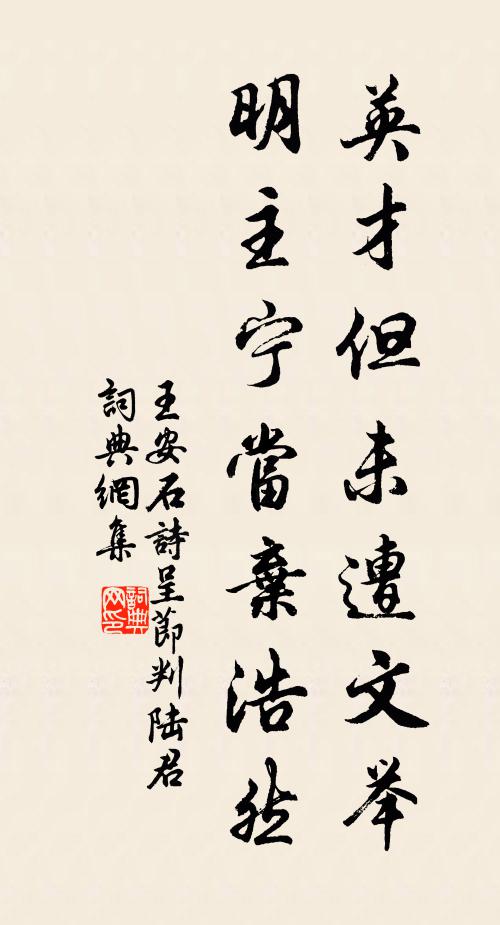 英才但未遭文举
明主宁當棄浩然
王安石詩呈節判陆君
詞典網集
詞典
网印